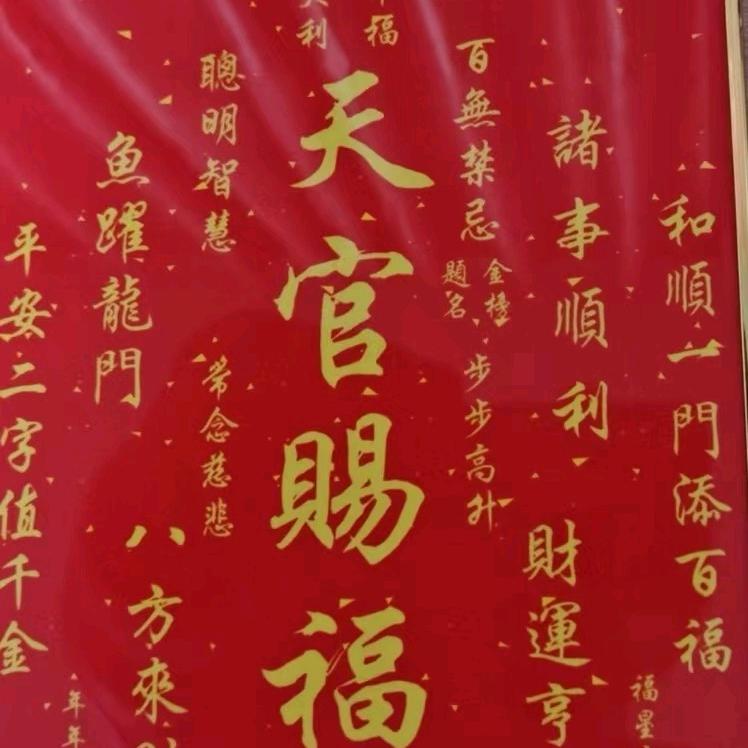 和順一門添百福
福星
諸事順利
財運亨
百無禁忌
金榜
題名
步步高升
福
利
天官賜福
聰明智慧
常念慈悲
魚躍龍門
八方來
年年
平安二字值千金